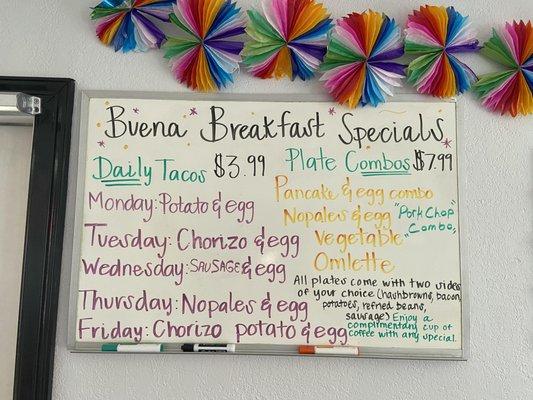 Buena Breakfast Specials
Daily Tacos $3.99
Monday: Potato & egg
Tuesday: Chorizo & egg
Wednesday: SAUSAGE & egg
Thursday: Nopales & egg
Friday: Chorizo potato & egg
Plate Combos $7.99
Pancake & egg combo
Nopales & egg
"Pork Chop"
Combo,,
Vegetable
Omlette
All plates come with two sides
of your choice (hashbrowns, bacon,
potatoes, refried beans,
sausage) Enjoy a
complimentary cup of
coffee with any special.